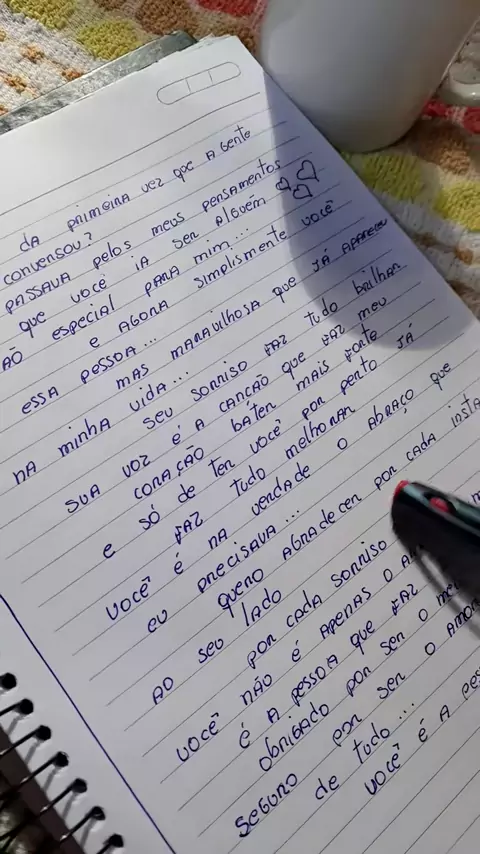 da primeira vez que a gente
conversou?
passava pelos meus pensamentos
que você ia ser alguém
ão especial para mim...
e agora simplismente você
essa pessoa...
mas maravilhosa que já apareceu
na minha vida...
seu sorriso faz tudo brilhar
sua voz é a canção que faz meu
coração báter mais forte
e só de ter você por perto já
faz tudo melhorar
você é na verdade o abraço que
eu precisava...
quero agradecer por cada insta
ao seu lado
por cada sorriso
você não é apenas o
é a pessoa que faz
obrigado por ser o
seguro por ser o amor
de tudo...
você é a